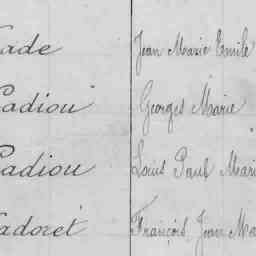 ade Jean Marie Emile
adiou Georges Marie
adiou Louis Paul Mari
adoret François Jean Ma